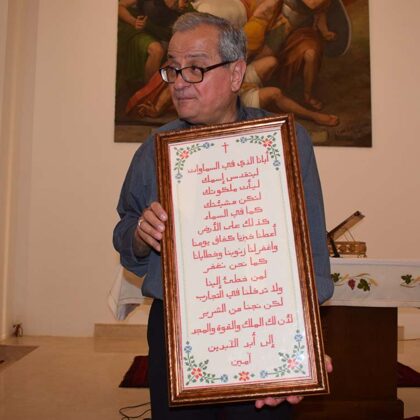 أبانا الذي في السماوات
ليتقدس إسمك
ليأت ملكوتك
لتكن مشيئتك
كما في السماء
كذلك على الأرض
أعطنا خبزنا كفاف يومنا
واغفر لنا ذنوبنا وخطايانا
كما نحن نغفر
لمن خطئ إلينا
ولا تدخلنا في التجارب
لكن نجنا من الشرير
لأن لك الملك والقوة والمجد
إلى أبد الآبدين
آمين